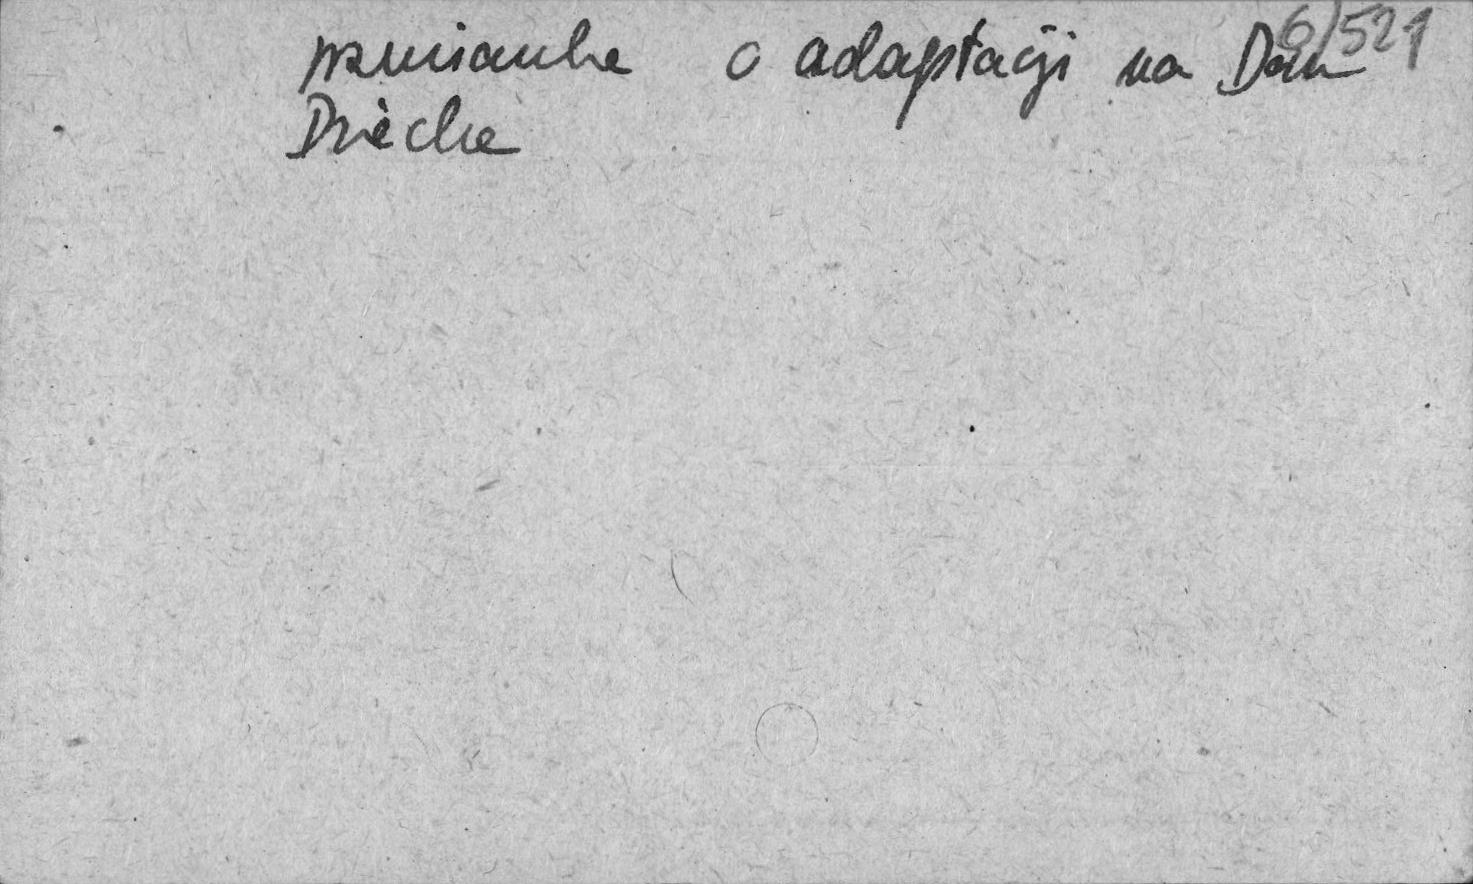 6/521
wzmianka o adaptacji na Dom
Dziecka